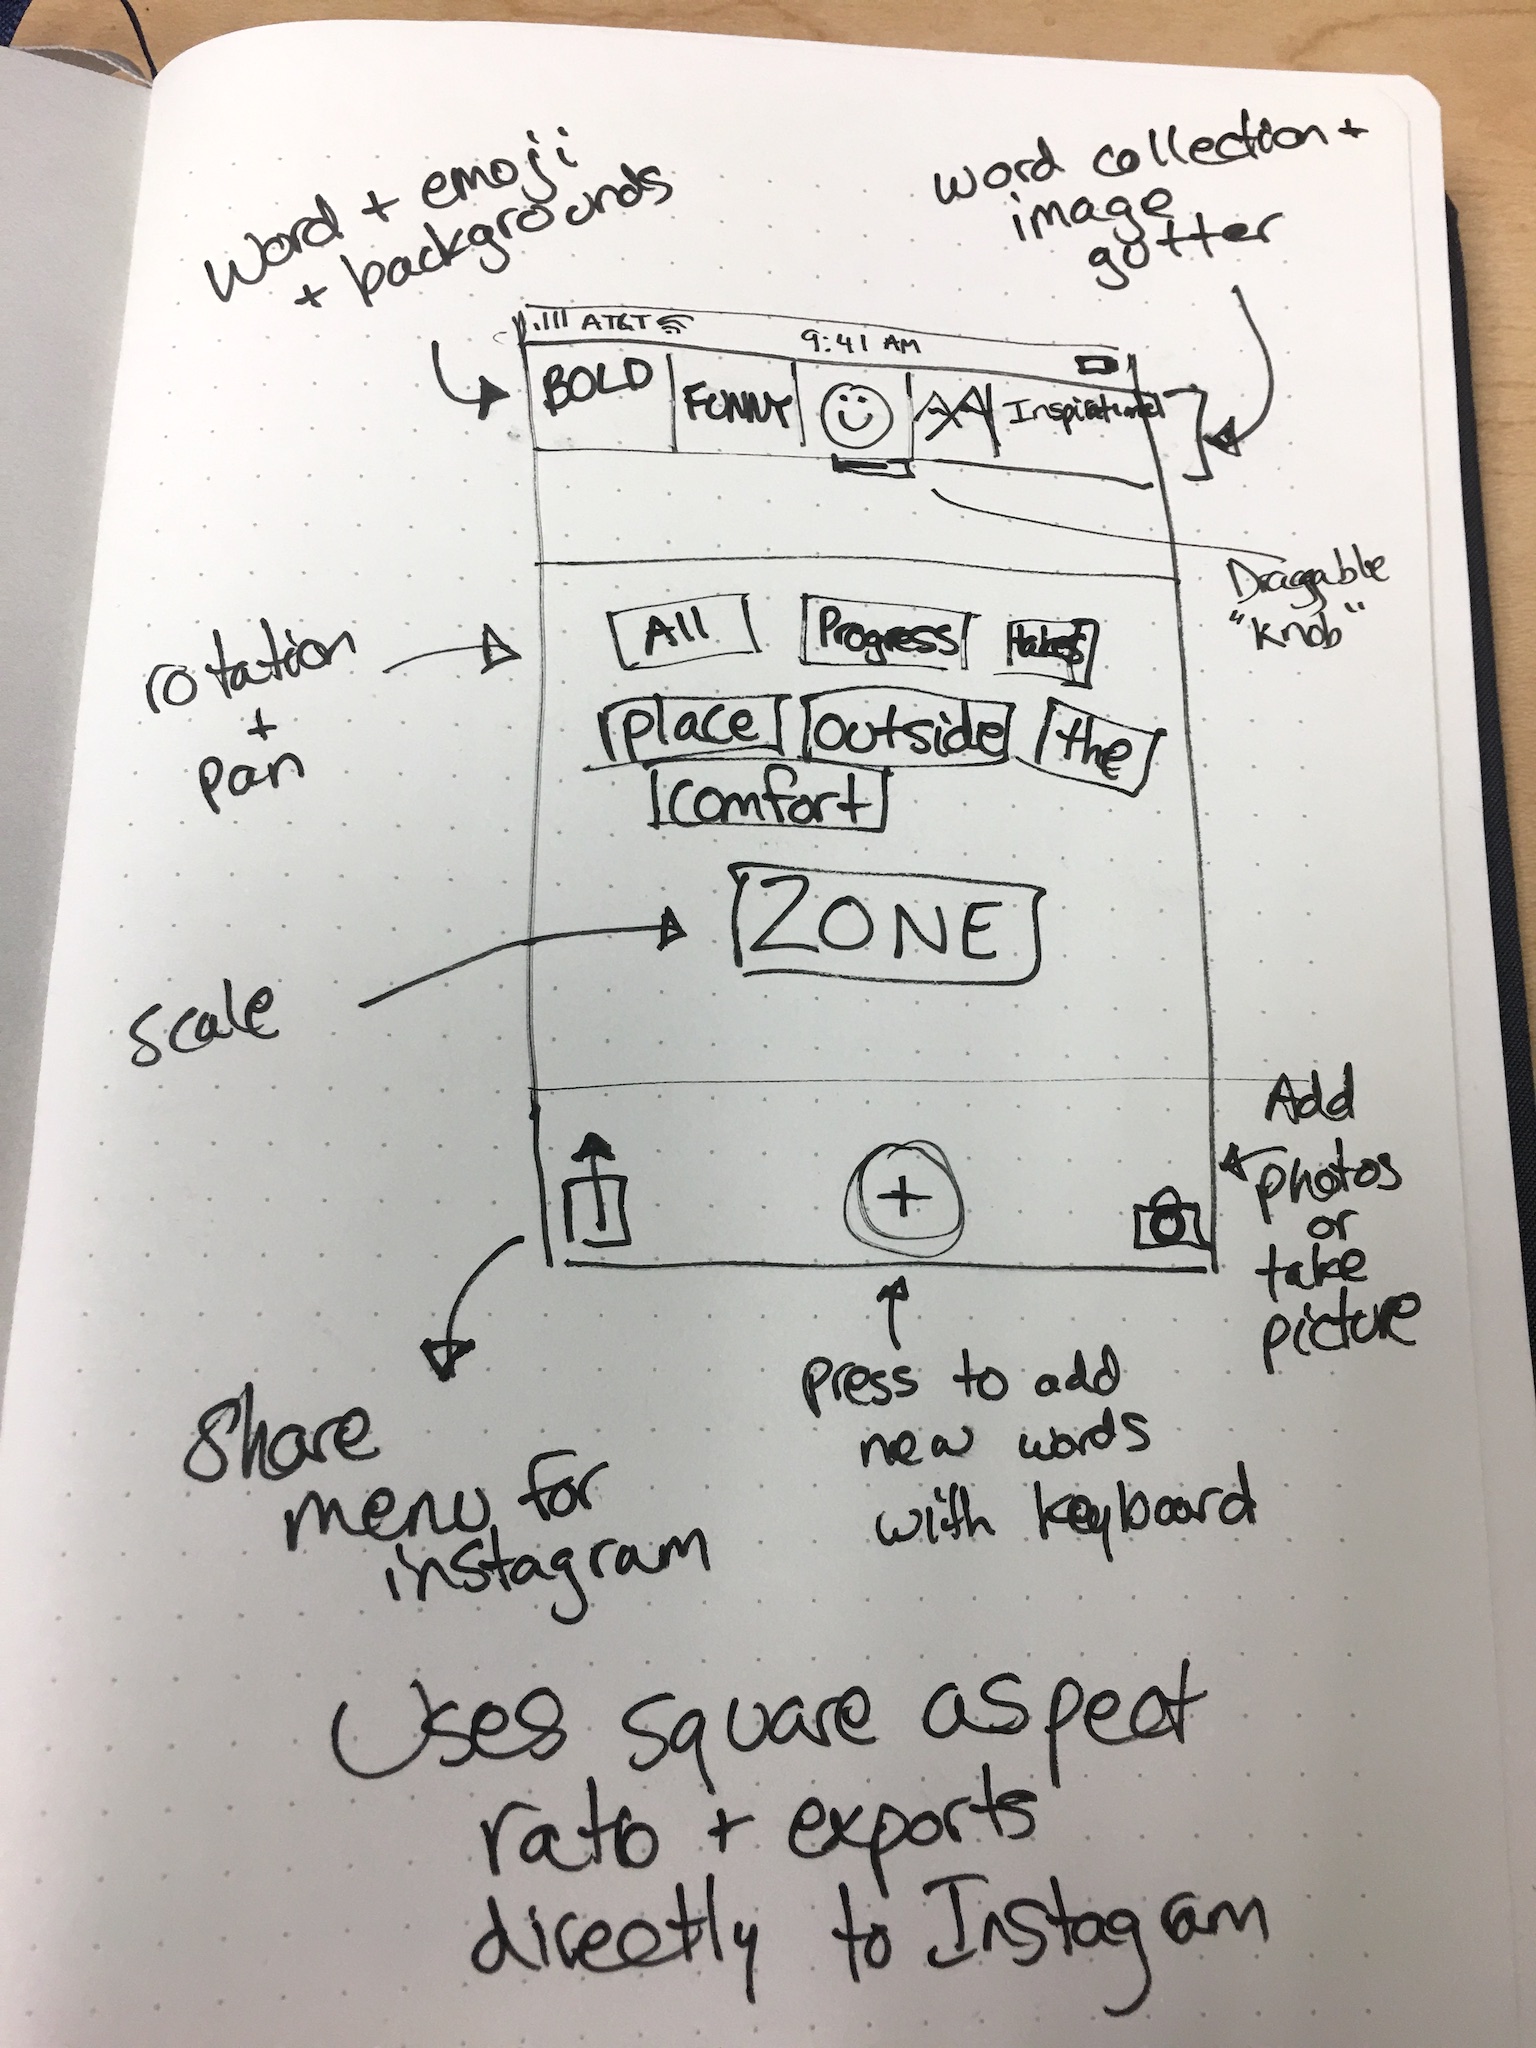 word + emoji
+ backgrounds
word collection +
image
gutter
AT&T
9:41 AM
BOLD
FUNNY
AA
Inspirational
Draggable
"knob"
rotation
+
pan
All Progress takes
place outside the
comfort
ZONE
scale
Add
photos
or
take
picture
+
press to add
new words
with keyboard
Share
menu for
instagram
Uses square aspect
ratio + exports
directly to Instagram